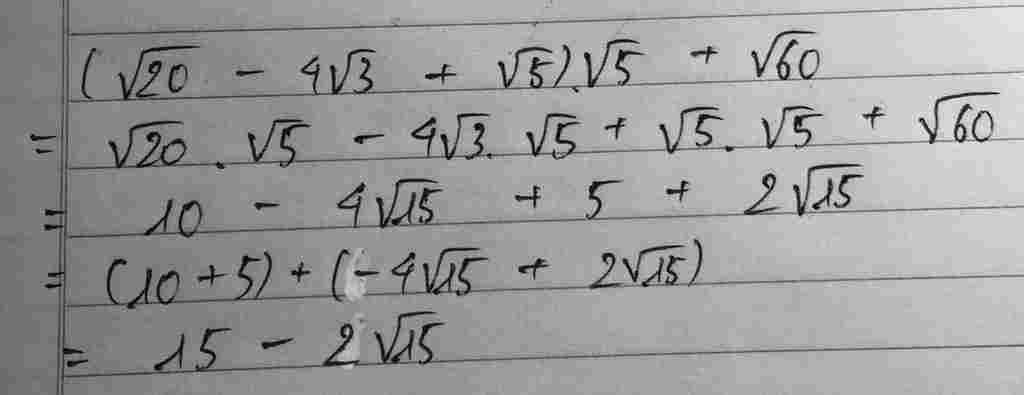 (√20 - 4√3 + √5).√5 + √60
= √20 . √5 - 4√3. √5 + √5. √5 + √60
= 10 - 4√15 + 5 + 2√15
= (10 + 5) + (-4√15 + 2√15)
= 15 - 2√15